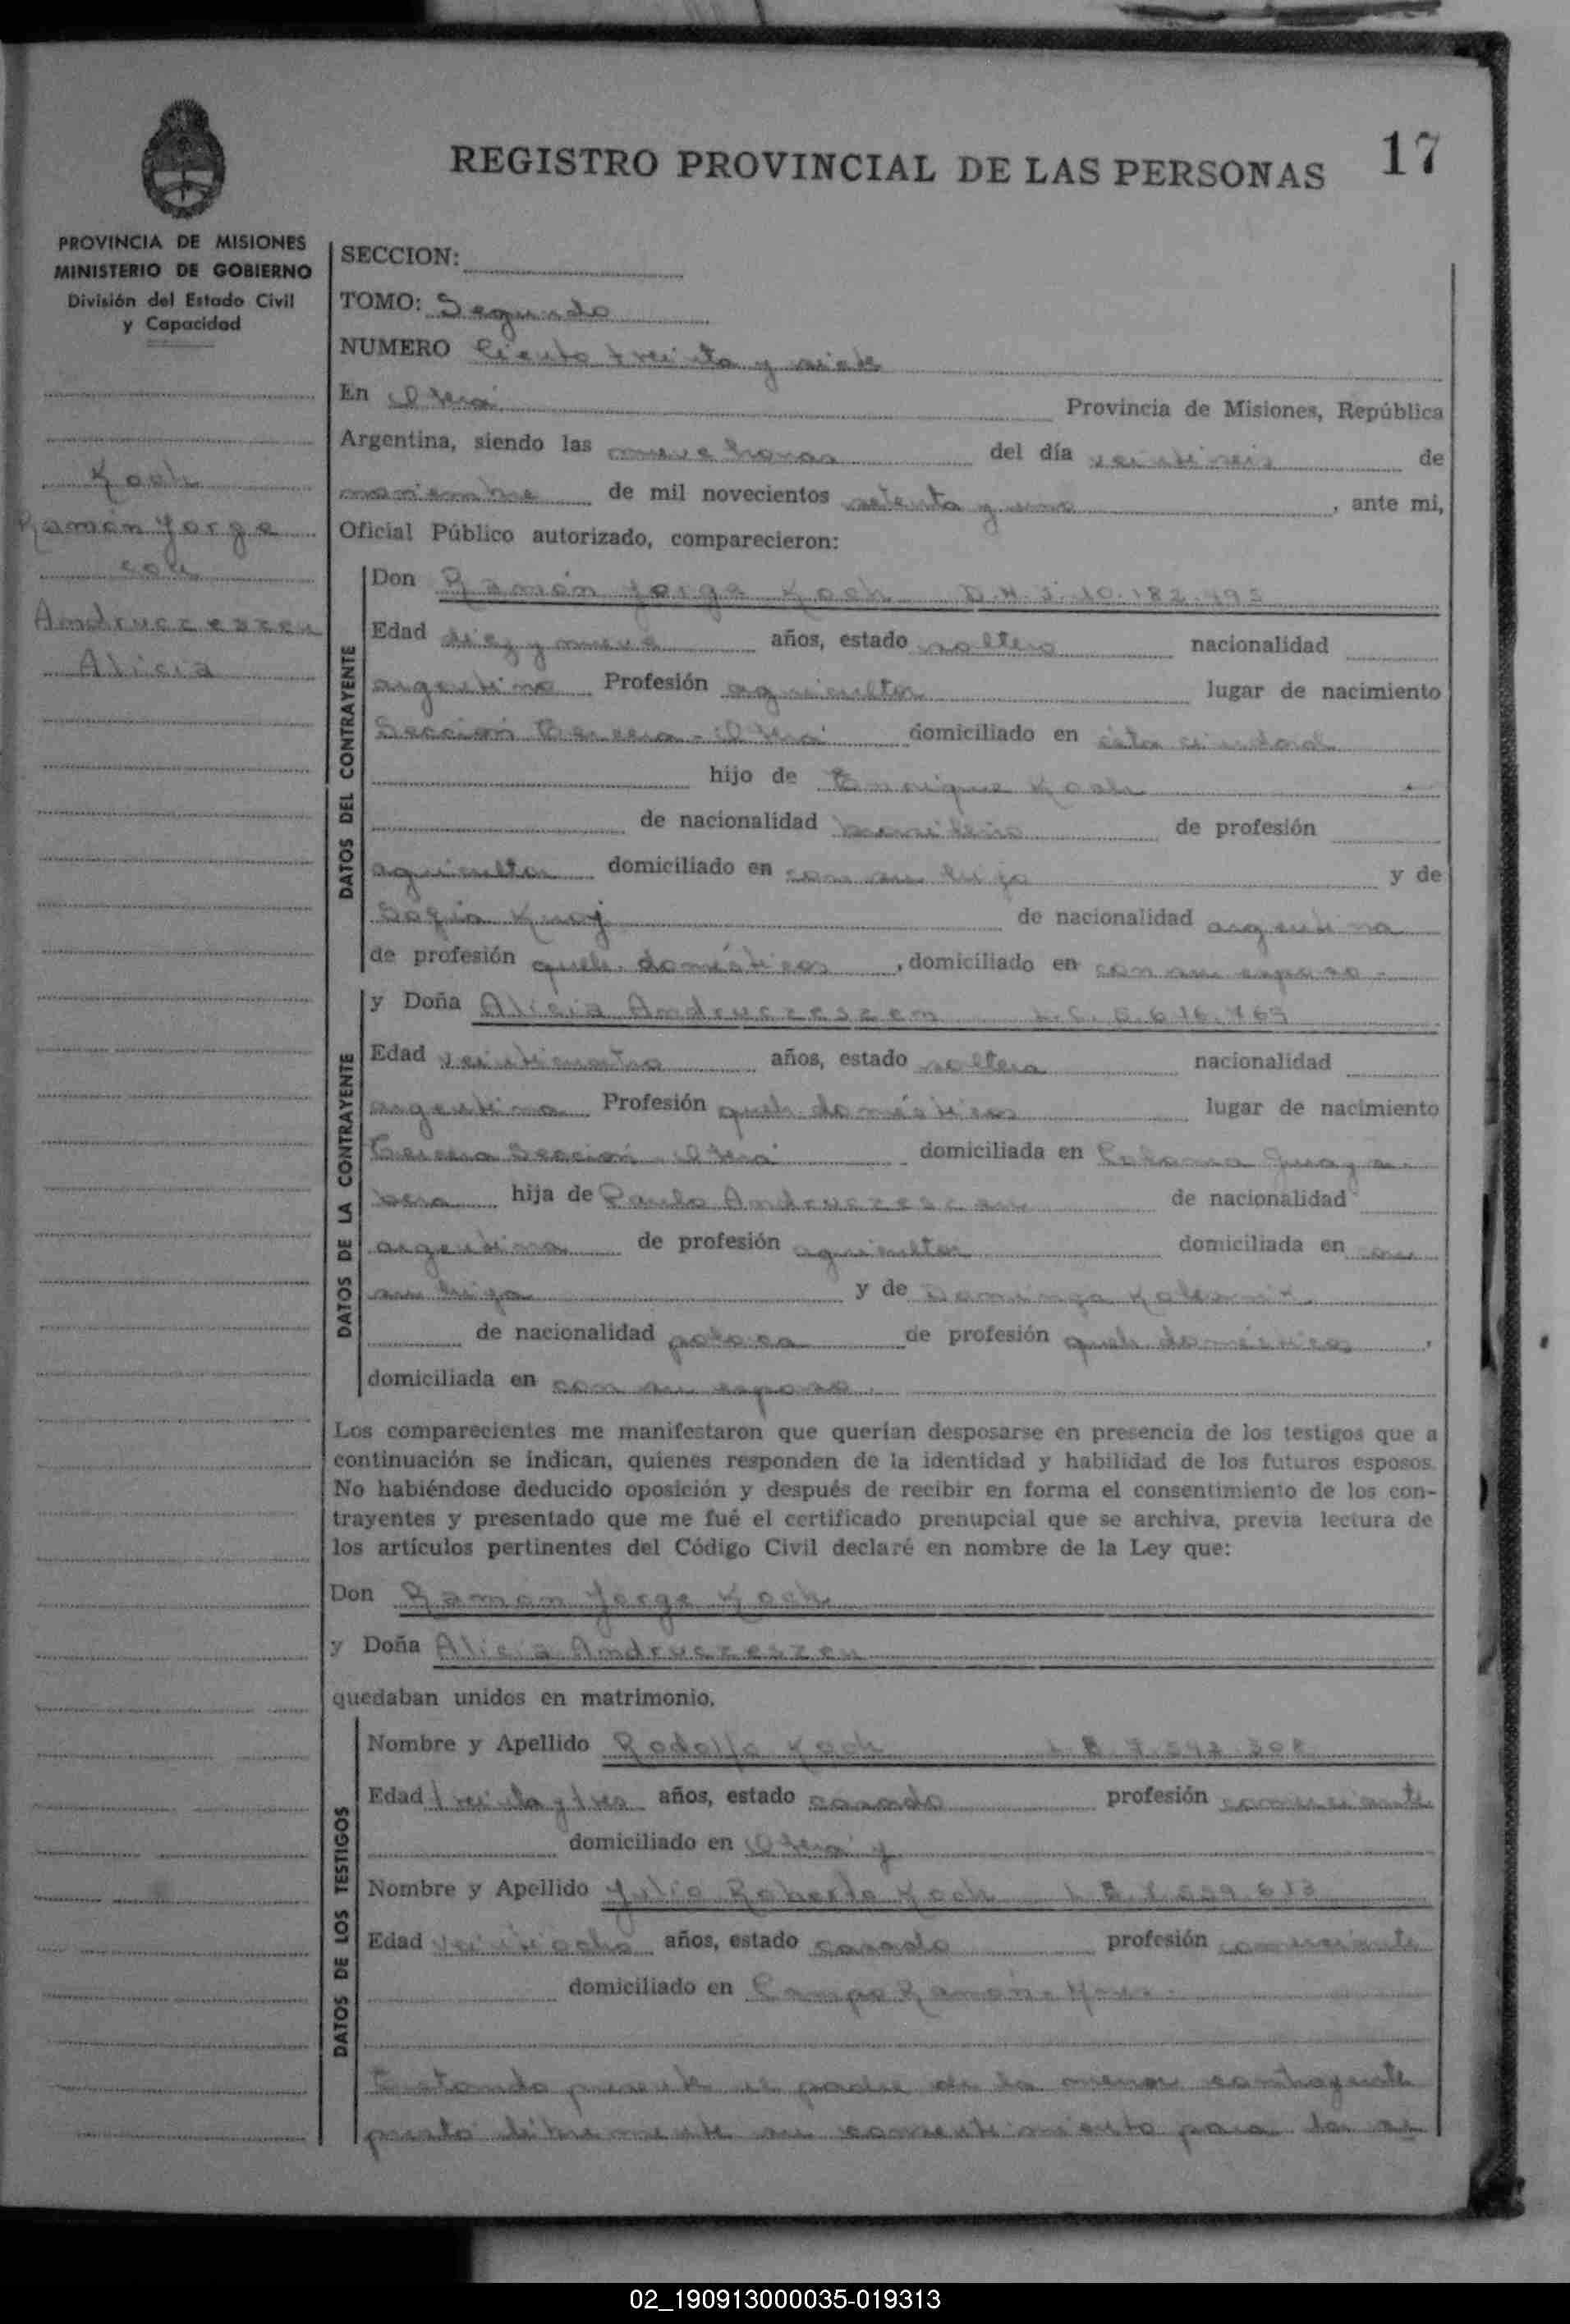 17
REGISTRO PROVINCIAL DE LAS PERSONAS
PROVINCIA DE MISIONES
MINISTERIO DE GOBIERNO
División del Estado Civil
y Capacidad
Koch
Ramón Jorge
con
Andruczeszen
Alicia
SECCION:
TOMO: Segundo
NUMERO Ciento treinta y siete
En Oberá Provincia de Misiones, República
Argentina, siendo las nueve horas del día veintiseis de
noviembre de mil novecientos setenta y uno, ante mi,
Oficial Público autorizado, comparecieron:
DATOS DEL CONTRAYENTE
Don Ramón Jorge Koch D.N.I. 10.182.495
Edad diez y nueve años, estado soltero nacionalidad
argentino Profesión agricultor lugar de nacimiento
Sección Tercera - Oberá domiciliado en ésta ciudad
hijo de Enrique Koch
de nacionalidad brasileño de profesión
agricultor domiciliado en con su hijo y de
Sofia de nacionalidad argentina
de profesión queh. domésticos, domiciliado en con su esposo.
DATOS DE LA CONTRAYENTE
y Doña Alicia Andruczeszen L.C. 6.616.769
Edad veinticuatro años, estado soltera nacionalidad
argentina Profesión queh. domésticos lugar de nacimiento
Tercera Sección - Oberá domiciliada en Colonia Guaya-
bera hija de Paulo Andruczeszen de nacionalidad
argentina de profesión agricultor domiciliada en con
su hija y de Dominga
de nacionalidad polaca de profesión queh. domésticos,
domiciliada en con su esposo.
Los comparecientes me manifestaron que querían desposarse en presencia de los testigos que a
continuación se indican, quienes responden de la identidad y habilidad de los futuros esposos.
No habiéndose deducido oposición y después de recibir en forma el consentimiento de los con-
trayentes y presentado que me fué el certificado prenupcial que se archiva, previa lectura de
los artículos pertinentes del Código Civil declaré en nombre de la Ley que:
Don Ramón Jorge Koch
y Doña Alicia Andruczeszen
quedaban unidos en matrimonio.
DATOS DE LOS TESTIGOS
Nombre y Apellido Rodolfo Koch L.E. 7.542.308
Edad treinta y tres años, estado casado profesión comerciante
domiciliado en Oberá y
Nombre y Apellido Julio Roberto Koch L.E.
Edad veintiocho años, estado casado profesión comerciante
domiciliado en Campo Ramón.
Estando presente el padre de la menor contrayente
presta libremente su consentimiento para la
02_190913000035-019313